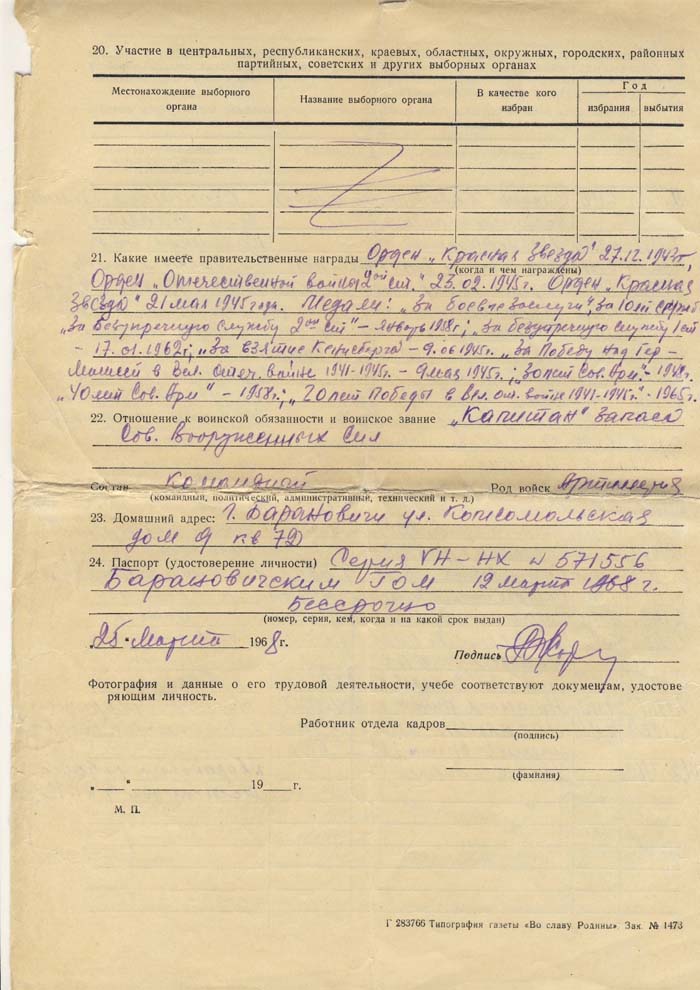 20. Участие в центральных, республиканских, краевых, областных, окружных, городских, районных
партийных, советских и других выборных органах
Местонахождение выборного органа
Название выборного органа
В качестве кого избран
Год
избрания
выбытия
21. Какие имеете правительственные награды Орден „Красная Звезда" 27.12.1943г,
(когда и чем награждены)
Орден „Отечественной войны 2ой ст." 23.02.1945г. Орден „Красная
Звезда" 21 мая 1945 года. Медали: „За боевые заслуги", за 10 лет
„За безупречную службу 2ой ст" – январь 1958г; „за безупречную службу 1 ст
– 17.01.1962г; „За взятие Кенигсберга – 9.06.1945г. „За Победу над Гер-
манией в Вел. отеч. войне 1941-1945г. – 9 мая 1945г.; „30 лет Сов. Арм." – 1948г.
„40 лет Сов. Арм" – 1958г.; „20 лет Победы в Вел. от. войне 1941-1945г." – 1965г.
22. Отношение к воинской обязанности и воинское звание „Капитан" запаса
Сов. Вооруженных Сил
Состав командный Род войск Артиллерия
(командный, политический, административный, технический и т. д.)
23. Домашний адрес: г. Барановичи ул. Комсомольская
дом 9 кв 72
24. Паспорт (удостоверение личности) Серия VН–НХ № 571556
Барановичским ГОМ 12 марта 1968 г.
Бессрочно
(номер, серия, кем, когда и на какой срок выдан)
„25" Марта 1968г.
Подпись
Фотография и данные о его трудовой деятельности, учебе соответствуют документам, удостове
ряющим личность.
Работник отдела кадров
(подпись)
(фамилия)
„ " 19 г.
М. П.
Г 283766 Типография газеты «Во славу Родины». Зак. № 1473